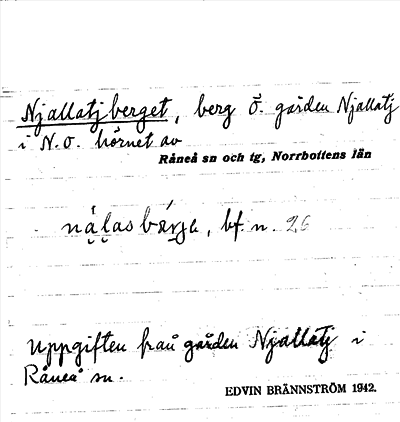 Njallatjberget, berg ö. gården Njallatj
i N.O. hörnet av
Råneå sn och tg, Norrbottens län
bf. n. 26
Uppgiften från gården Njallatj i
Råneå sn.
EDVIN BRÄNNSTRÖM 1942.